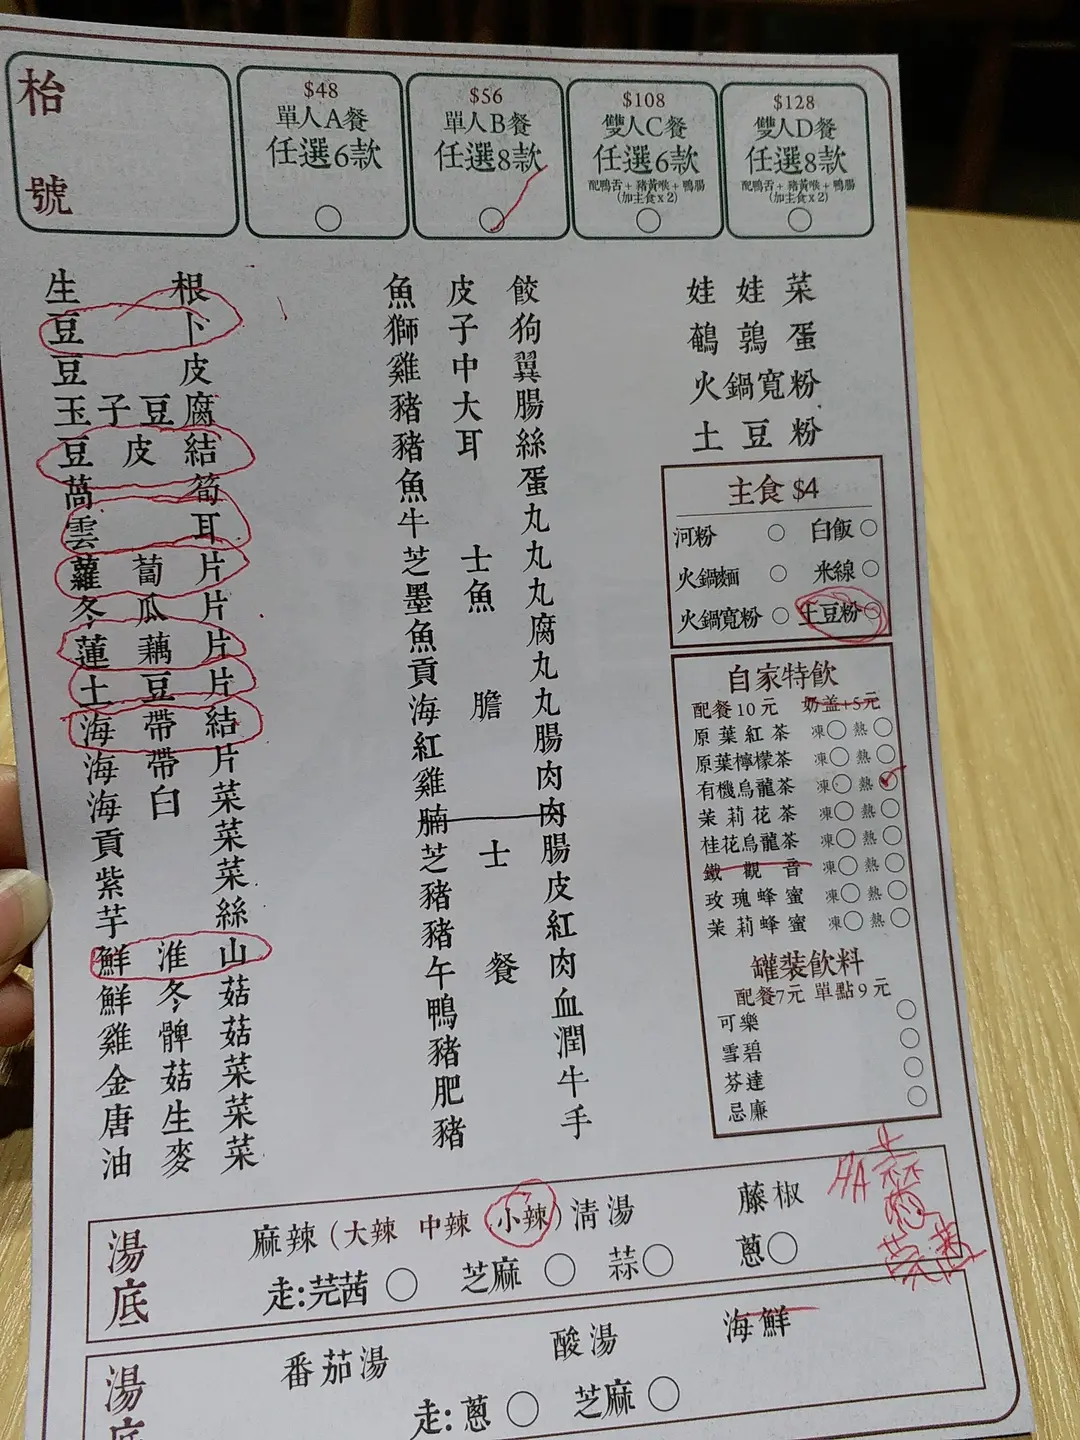 枱號
$48
單人A餐
任選6款
$56
單人B餐
任選8款
$108
雙人C餐
任選6款
配鴨舌+豬黃喉+鴨腸
(加主食x2)
$128
雙人D餐
任選8款
配鴨舌+豬黃喉+鴨腸
(加主食x2)
生根
豆卜
豆皮
玉子豆腐
豆皮結
萵筍
雲耳
蘿蔔片
冬瓜片
蓮藕片
土豆片
海帶結
海帶片
海白菜
貢菜
紫菜
芋絲
鮮淮山
鮮冬菇
雞髀菇
金菇菜
唐生菜
油麥菜
魚皮餃
獅子狗
雞中翼
豬大腸
豬耳絲
魚蛋
牛丸
芝士丸
墨魚丸
魚腐
貢丸
海膽丸
紅腸
雞肉
腩肉
芝士腸
豬皮
豬紅
午餐肉
鴨血
豬潤
肥牛
豬手
娃娃菜
鵪鶉蛋
火鍋寬粉
土豆粉
主食 $4
河粉 白飯
火鍋麵 米線
火鍋寬粉 土豆粉
自家特飲
配餐10元 奶盖+5元
原葉紅茶 凍 熱
原葉檸檬茶 凍 熱
有機烏龍茶 凍 熱
茉莉花茶 凍 熱
桂花烏龍茶 凍 熱
鐵觀音 凍 熱
玫瑰蜂蜜 凍 熱
茉莉蜂蜜 凍 熱
罐裝飲料
配餐7元 單點9元
可樂
雪碧
芬達
忌廉
湯底
麻辣(大辣 中辣 小辣) 清湯 藤椒
走:芫茜 芝麻 蒜 蔥
湯底
番茄湯 酸湯 海鮮
走:蔥 芝麻